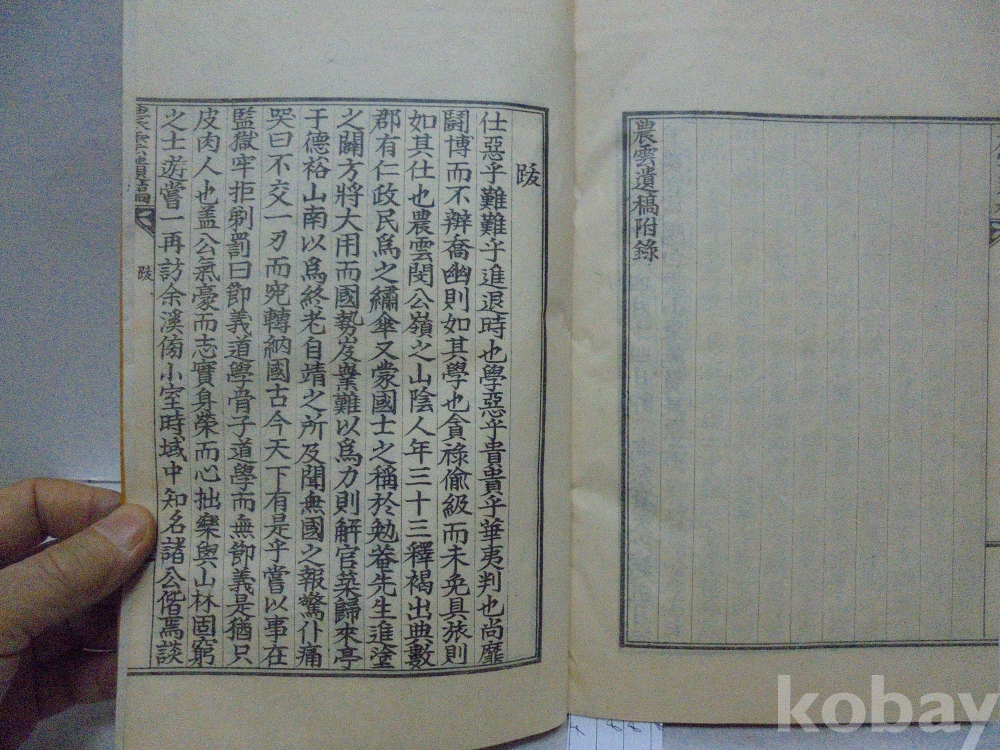 農雲遺稿附錄
跋
仕惡乎難難乎進退時也學惡乎貴貴乎華夷判也尚靡
鬪博而不辨喬幽則如其學也貪祿偸級而未免具旅則
如其仕也農雲閔公嶺之山陰人年三十三釋褐出典數
郡有仁政民爲之繡傘又蒙國士之稱於勉菴先生進塗
之闢方將大用而國勢岌業難以爲力則解官築歸來亭
于德裕山南以爲終老自靖之所及聞無國之報驚仆痛
哭曰不交一刃而宛轉納國古今天下有是乎嘗以事在
監獄牢拒剃罰曰節義道學骨子道學而無節義是猶只
皮肉人也盖公氣豪而志實身榮而心拙樂與山林固窮
之士遊嘗一再訪余溪傍小室時域中知名諸公偕焉談
農雲遺稿
跋
kobay